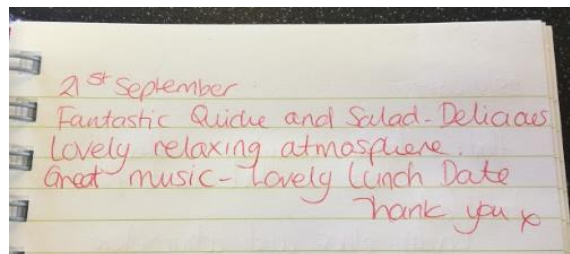 21st September
Fantastic Quiche and Salad - Delicious
Lovely relaxing atmosphere.
Great music - Lovely Lunch Date
Thank you x